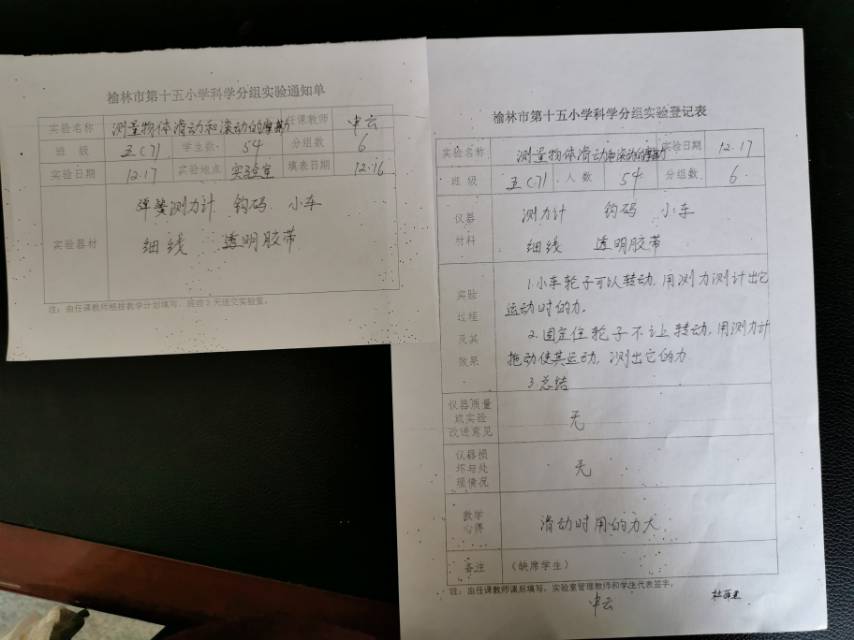 榆林市第十五小学科学分组实验通知单
实验名称 测量物体滑动和滚动的摩擦力 任课教师 申云
班级 五(7) 学生数 54 分组数 6
实验日期 12.17 实验地点 实验室 填表日期 12.16
实验器材
弹簧测力计 钩码 小车
细线 透明胶带
注:由任课教师根据教学计划填写,提前3天送交实验室。
榆林市第十五小学科学分组实验登记表
实验名称 测量物体滑动和滚动的摩擦力 实验日期 12.17
班级 五(7) 人数 54 分组数 6
仪器
材料
测力计 钩码 小车
细线 透明胶带
实验
过程
及其
效果
1.小车轮子可以转动,用测力测计出它
运动时的力.
2.固定住轮子不让转动,用测力计
拖动使其运动,测出它的力
3.总结
仪器质量
或实验
改进意见
无
仪器损
坏与处
理情况
无
教学
心得
滑动时用的力大.
备注 (缺席学生)
注:由任课教师课后填写,实验室管理教师和学生代表签字。
申云